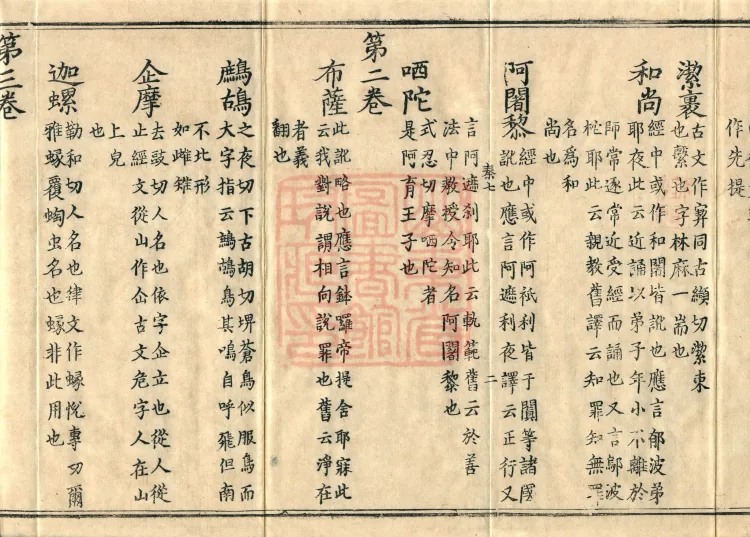 作先提
潔裹古文作㓗同古纈切潔束
也繫也字林麻一耑也
和尚經中或作和闍皆訛也應言郁波弟
耶夜此云近誦以弟子年小不離於
師常逐常近受經而誦也又言鄔波
柁耶此云親教舊譯云知罪知無罪
名為和
尚也
阿闍黎經中或作阿祇利皆于闐等諸國
訛也應言阿遮利夜譯云正行又
秦七 二
言阿遮利耶此云軌範舊云於善
法中教授令知名阿闍黎也
哂陀式忍切摩哂陀者
是阿育王子也
第二卷
布薩此訛略也應言鉢羅帝提舍耶寐此
云我對說謂相向說罪也舊云淨在
者義
翻也
鷓鴣之夜切下古胡切埤蒼鳥似服鳥而
大字指云鷓鴣鳥其鳴自呼飛但南
不比形
如雌雉
企摩去豉切人名也依字企立也從人從
止經文從山作仚古文危字人在山
上皃
也
迦螺勒和切人名也律文作蠡悅專切爾
雅蝝蝮蜪虫名也蝝非此用也
第三卷